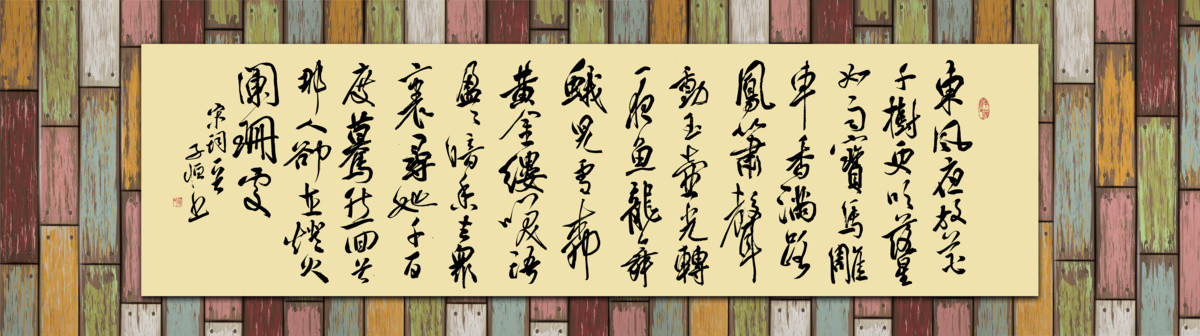 東風夜放花
千樹更吹落星
如雨寶馬雕
車香滿路
鳳簫聲
動玉壺光轉
一夜魚龍舞
蛾兒雪柳
黃金縷笑語
盈〻暗香去眾
裏尋她千百
度驀然回首
那人卻在燈火
闌珊處
宋詞